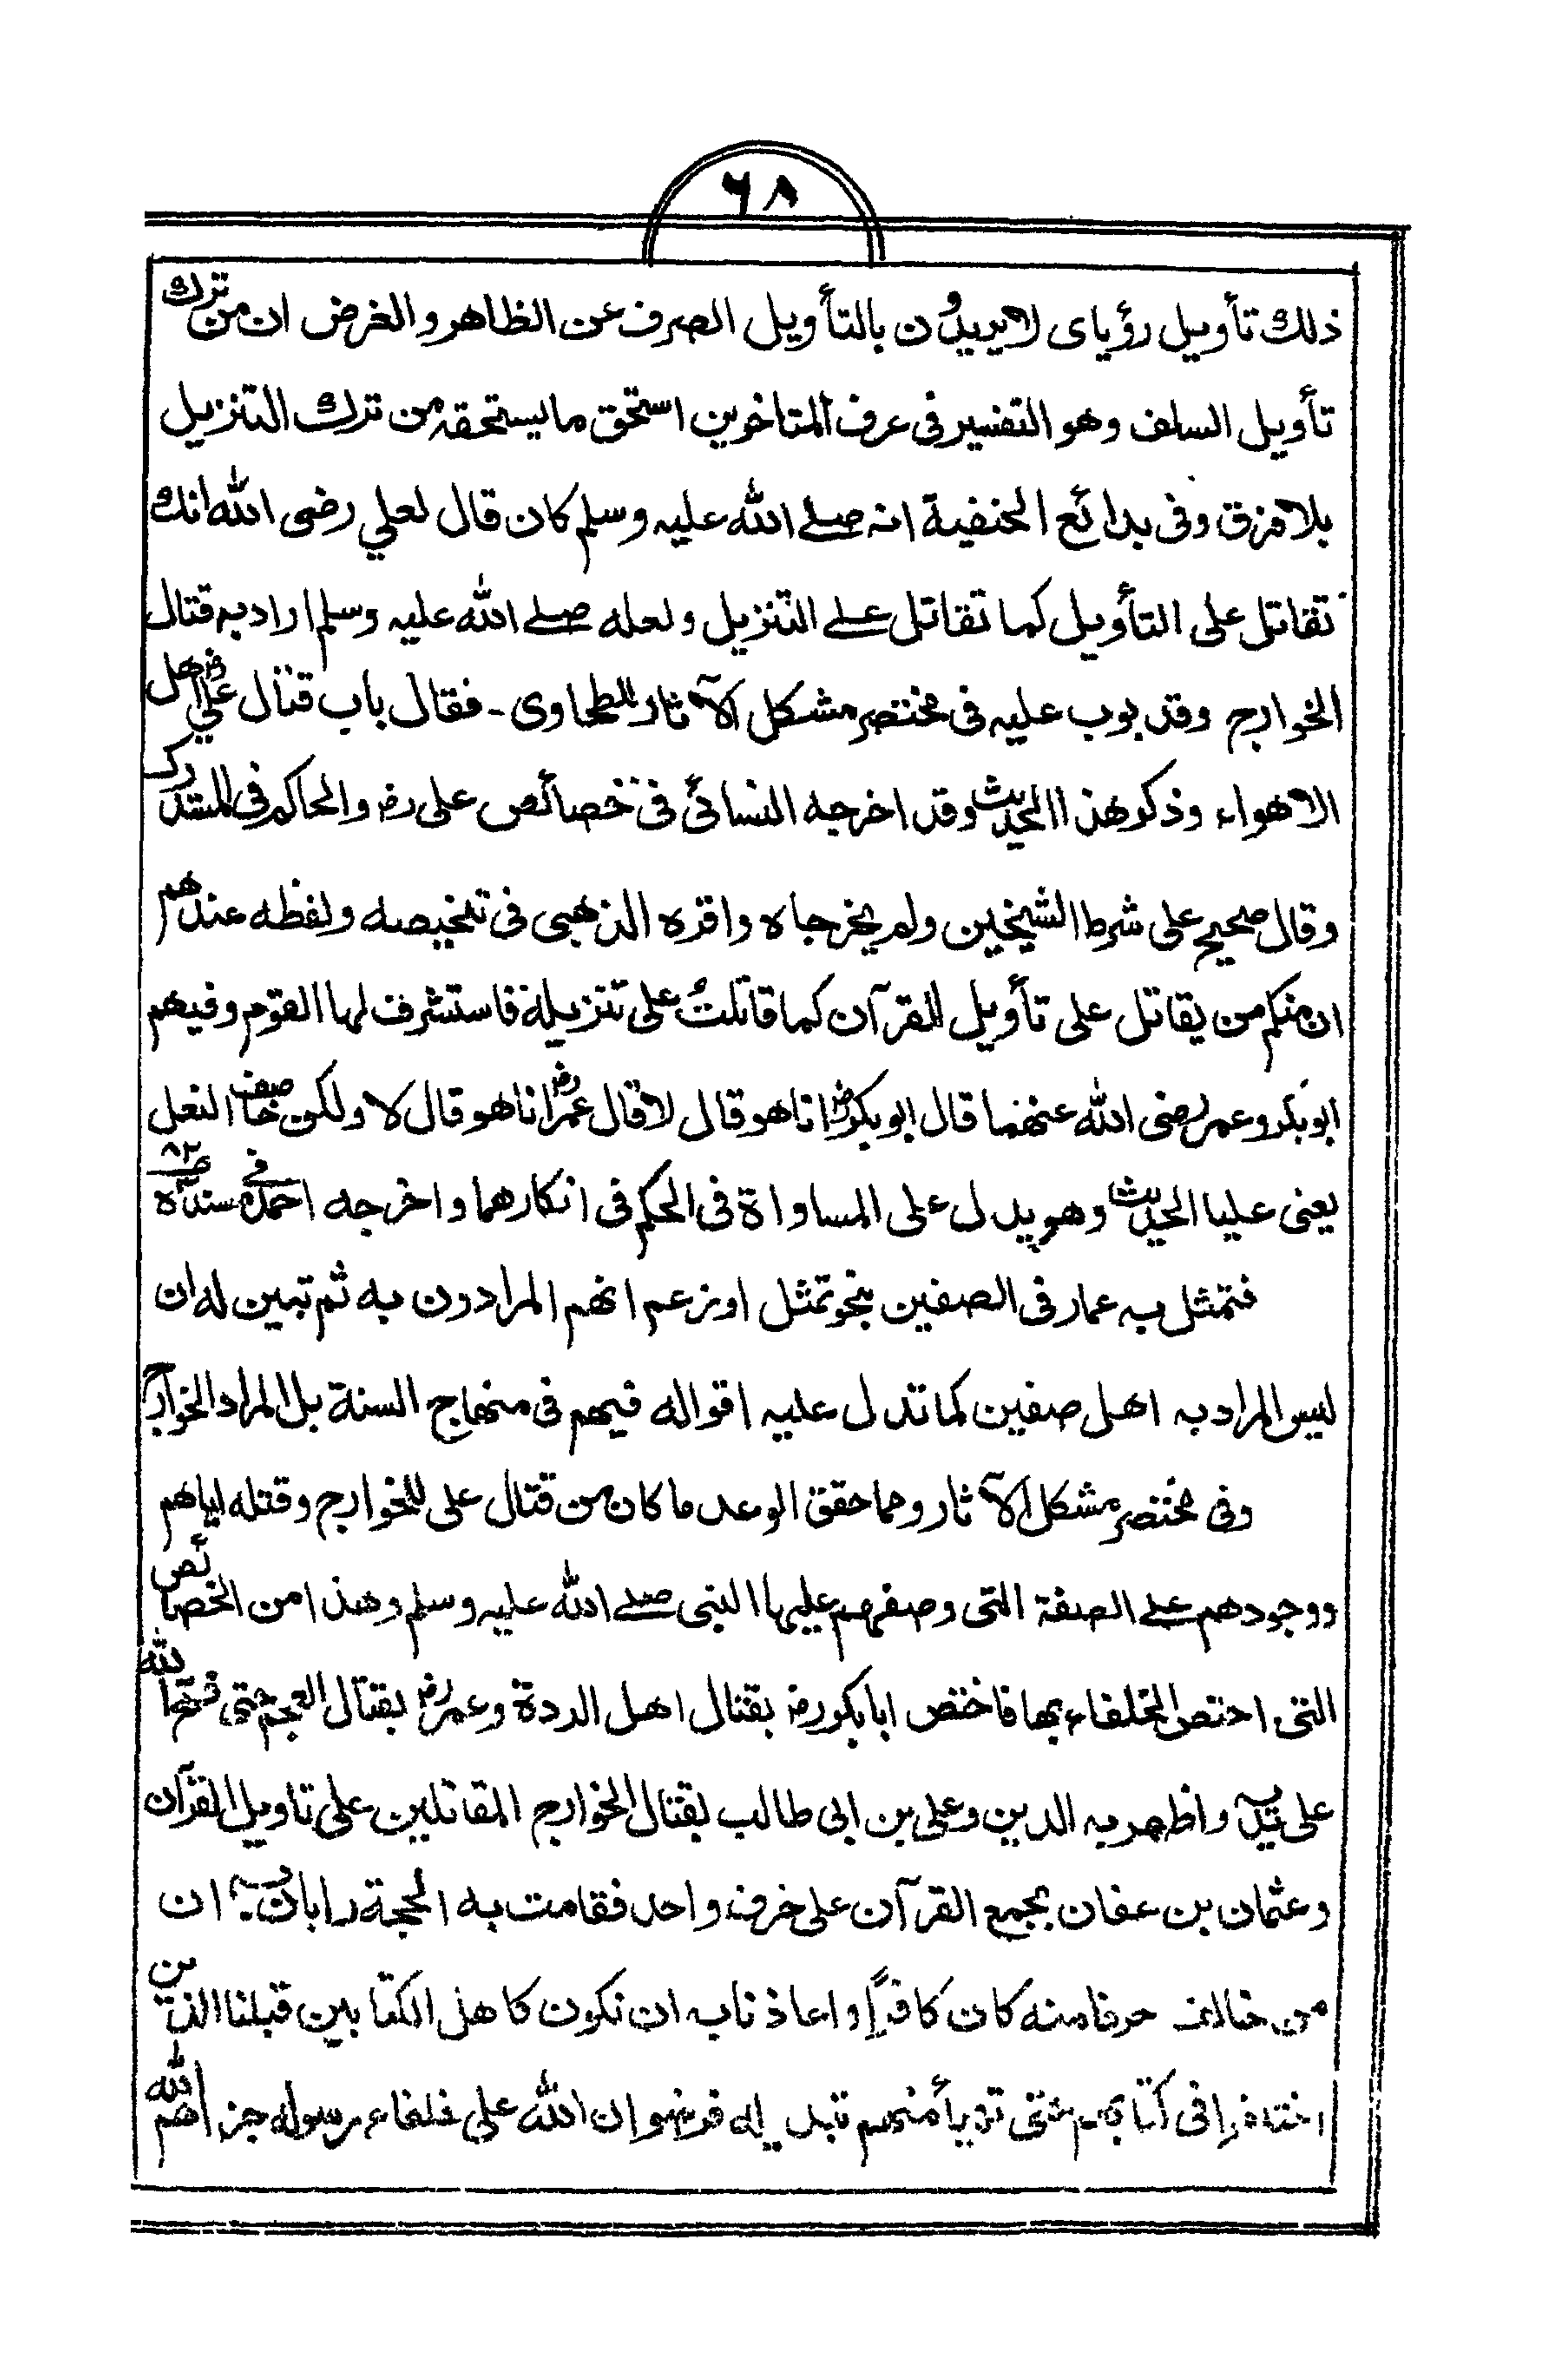 ٦٨
ذلك تأويل رؤياى لا يريدون بالتأويل الصرف عن الظاهر والغرض ان من ترك
تأويل السلف وهو التفسير فى عرف المتاخرين استحق ما يستحقه من ترك التنزيل
بلا فرق وفى بدائع الحنفية انه صلے الله عليه وسلم كان قال لعلي رضى الله انك
تقاتل على التأويل كما تقاتل علے التنزيل ولعله صلے الله عليه وسلم اراد به قتال
الخوارج وقد بوب عليه فى مختصر مشكل الآثار للطحاوى - فقال باب قتال علي رض اهل
الاهواء وذكر هذا الحديث وقد اخرجه النسائى فى خصائص على رض والحاكم فى المستدرك
وقال صحيح على شرط الشيخين ولم يخرجاه واقره الذهبى فى تلخيصه ولفظه عندهم
ان منكم من يقاتل على تأويل القرآن كما قاتلتُ على تنزيله فاستشرف لها القوم وفيهم
ابو بكر وعمر رضى الله عنهما قال ابو بكر رض انا هو قال لا قال عمر رض انا هو قال لا ولكن خاصف النعل
يعنى عليا الحديث وهو يدل على المساواة فى الحكم فى انكارهما واخرجه احمد فى مسنده ص ٨٢
فتمثل به عمار فى الصفين بنحو تمثل او زعم انهم المرادون به ثم تبين له ان
ليس المراد به اهل صفين كما تدل عليه اقواله فيهم فى منهاج السنة بل المراد الخوارج
وفى مختصر مشكل الآثار ومما حقق الوعد ما كان من قتال على للخوارج وقتله اياهم
ووجودهم علے الصفة التى وصفهم عليها النبى صلے الله عليه وسلم وهذا من الخصائص
التى اختص الخلفاء بها فاختص ابا بكر رض بقتال اهل الردة وعمر رض بقتال العجم حتى فتح الله
على يديه واظهر به الدين وعلى بن ابى طالب بقتال الخوارج المقاتلين على تاويل القرآن
وعثمان بن عفان بجمع القرآن على حرف واحد فقامت به الحجة وابان به ان
من خالف حرفا منه كان كافراً واعاذنا به ان نكون كاهل الكتابين قبلنا الذين
اختلفوا فى كتابهم حتى تهيأ منهم تبديله فرضوان الله على خلفاء رسوله جزاهم الله